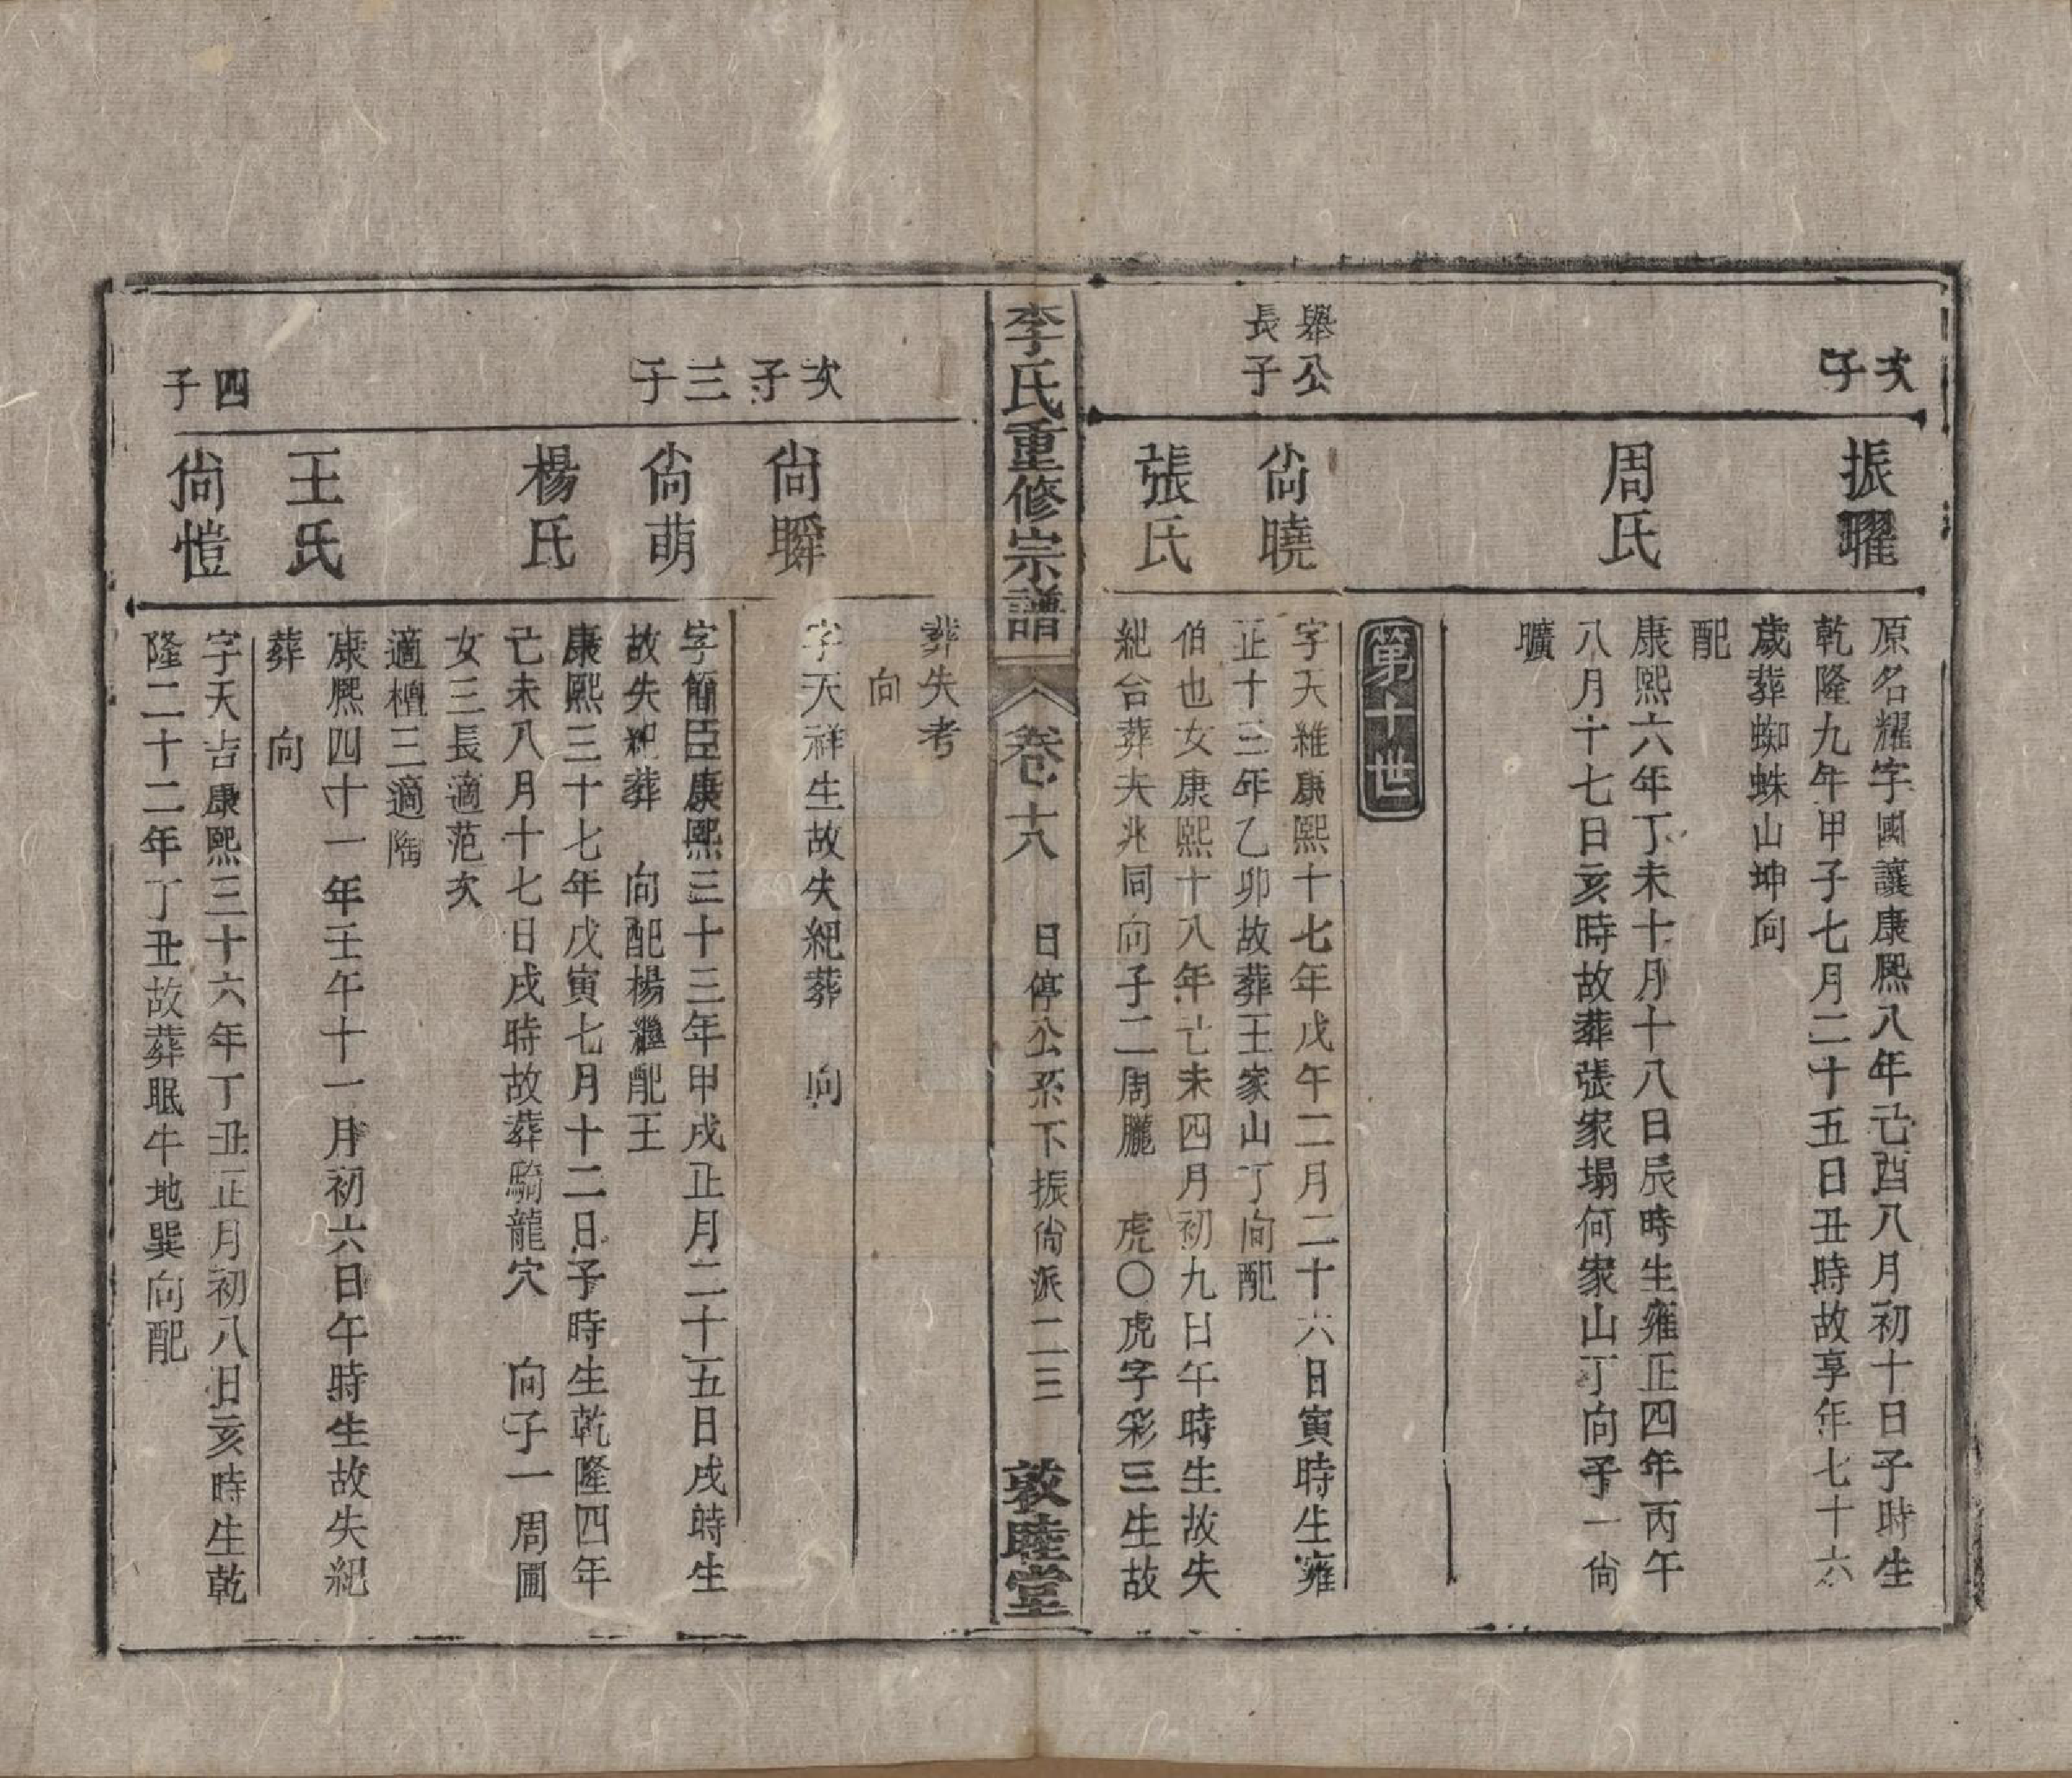 次
子
振㬢
原名耀字國讓康熙八年己酉八月初十日子時生
乾隆九年甲子七月二十五日丑時故享年七十六
歲葬蜘蛛山坤向
配
周氏
康熙六年丁未十月十八日辰時生雍正四年丙午
八月十七日亥時故葬張家塌何家山丁向子一尙
曠
第十世
舉公
長子
尙曉
字天維康熙十七年戊午二月二十六日寅時生雍
正十三年乙卯故葬王家山丁向配
張氏
伯也女康熙十八年己未四月初九日午時生故失
紀合葬夫兆同向子二周朧　虎〇虎字彩三生故
李氏重修宗譜
卷十八
日停公系下振尙派二三
敦睦堂
葬失考
向
次子
尙瞬
字天祥生故失紀葬　向
三子
尙萌
字簡臣康熙三十三年甲戌正月二十五日戌時生
故失紀葬　向配楊繼配王
楊氏
康熙三十七年戊寅七月十二日子時生乾隆四年
己未八月十七日戌時故葬騎龍穴　向子一周圃
女三長適范次
適檀三適陶
王氏
康熙四十一年壬午十一月初六日午時生故失紀
葬　向
四子
尙愷
字天吉康熙三十六年丁丑正月初八日亥時生乾
隆二十二年丁丑故葬眠牛地巽向配